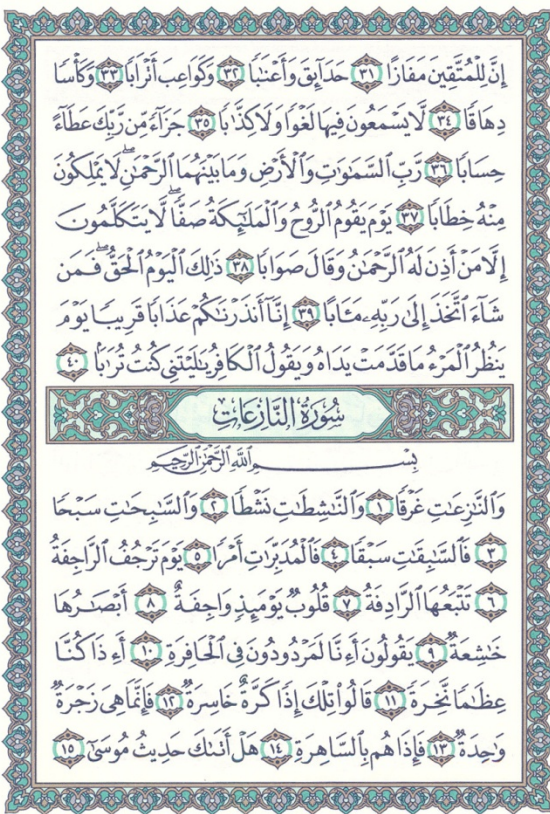 إِنَّ لِلْمُتَّقِينَ مَفَازًا ٣١ حَدَآئِقَ وَأَعْنَٰبًا ٣٢ وَكَوَاعِبَ أَتْرَابًا ٣٣ وَكَأْسًا
دِهَاقًا ٣٤ لَّا يَسْمَعُونَ فِيهَا لَغْوًا وَلَا كِذَّٰبًا ٣٥ جَزَآءً مِّن رَّبِّكَ عَطَآءً
حِسَابًا ٣٦ رَّبِّ السَّمَٰوَٰتِ وَالْأَرْضِ وَمَا بَيْنَهُمَا الرَّحْمَٰنِ ۖ لَا يَمْلِكُونَ
مِنْهُ خِطَابًا ٣٧ يَوْمَ يَقُومُ الرُّوحُ وَالْمَلَٰٓئِكَةُ صَفًّا ۖ لَّا يَتَكَلَّمُونَ
إِلَّا مَنْ أَذِنَ لَهُ الرَّحْمَٰنُ وَقَالَ صَوَابًا ٣٨ ذَٰلِكَ الْيَوْمُ الْحَقُّ ۖ فَمَن
شَآءَ اتَّخَذَ إِلَىٰ رَبِّهِۦ مَـَٔابًا ٣٩ إِنَّآ أَنذَرْنَٰكُمْ عَذَابًا قَرِيبًا يَوْمَ
يَنظُرُ الْمَرْءُ مَا قَدَّمَتْ يَدَاهُ وَيَقُولُ الْكَافِرُ يَٰلَيْتَنِى كُنتُ تُرَٰبًۢا ٤٠
سُورَةُ النَّازِعَاتِ
بِسْمِ اللَّهِ الرَّحْمَٰنِ الرَّحِيمِ
وَالنَّٰزِعَٰتِ غَرْقًا ١ وَالنَّٰشِطَٰتِ نَشْطًا ٢ وَالسَّٰبِحَٰتِ سَبْحًا
٣ فَالسَّٰبِقَٰتِ سَبْقًا ٤ فَالْمُدَبِّرَٰتِ أَمْرًا ٥ يَوْمَ تَرْجُفُ الرَّاجِفَةُ
٦ تَتْبَعُهَا الرَّادِفَةُ ٧ قُلُوبٌ يَوْمَئِذٍ وَاجِفَةٌ ٨ أَبْصَٰرُهَا
خَٰشِعَةٌ ٩ يَقُولُونَ أَءِنَّا لَمَرْدُودُونَ فِى الْحَافِرَةِ ١٠ أَءِذَا كُنَّا
عِظَٰمًا نَّخِرَةً ١١ قَالُوا۟ تِلْكَ إِذًا كَرَّةٌ خَاسِرَةٌ ١٢ فَإِنَّمَا هِىَ زَجْرَةٌ
وَٰحِدَةٌ ١٣ فَإِذَا هُم بِالسَّاهِرَةِ ١٤ هَلْ أَتَىٰكَ حَدِيثُ مُوسَىٰٓ ١٥